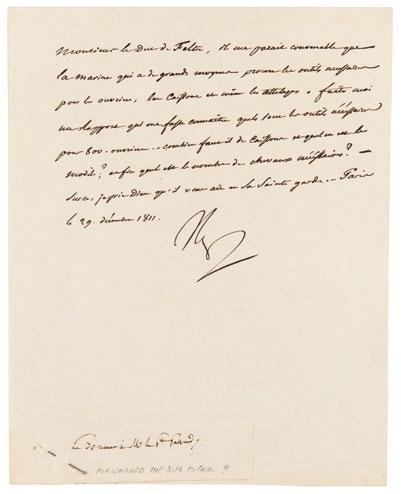 Monsieur le Duc de Feltre, il me parait convenable que
la marine qui a de grands moyens procure les outils nécessaires
pour les ouvriers, les Caissons et même les attelages. faites moi
un rapport qui me fasse connaître quels sont les outils nécessaires
pour 800. ouvriers. - combien faut il de Caissons et quel en est le
modèle? enfin quel est le nombre de chevaux nécessaires? -
Sur ce, je prie Dieu qu'il vous ait en sa Sainte garde. - Paris
le 29. décembre 1811.
Np
Le 30 à Mr le
FORWARDED THE 30th TO GÉR.